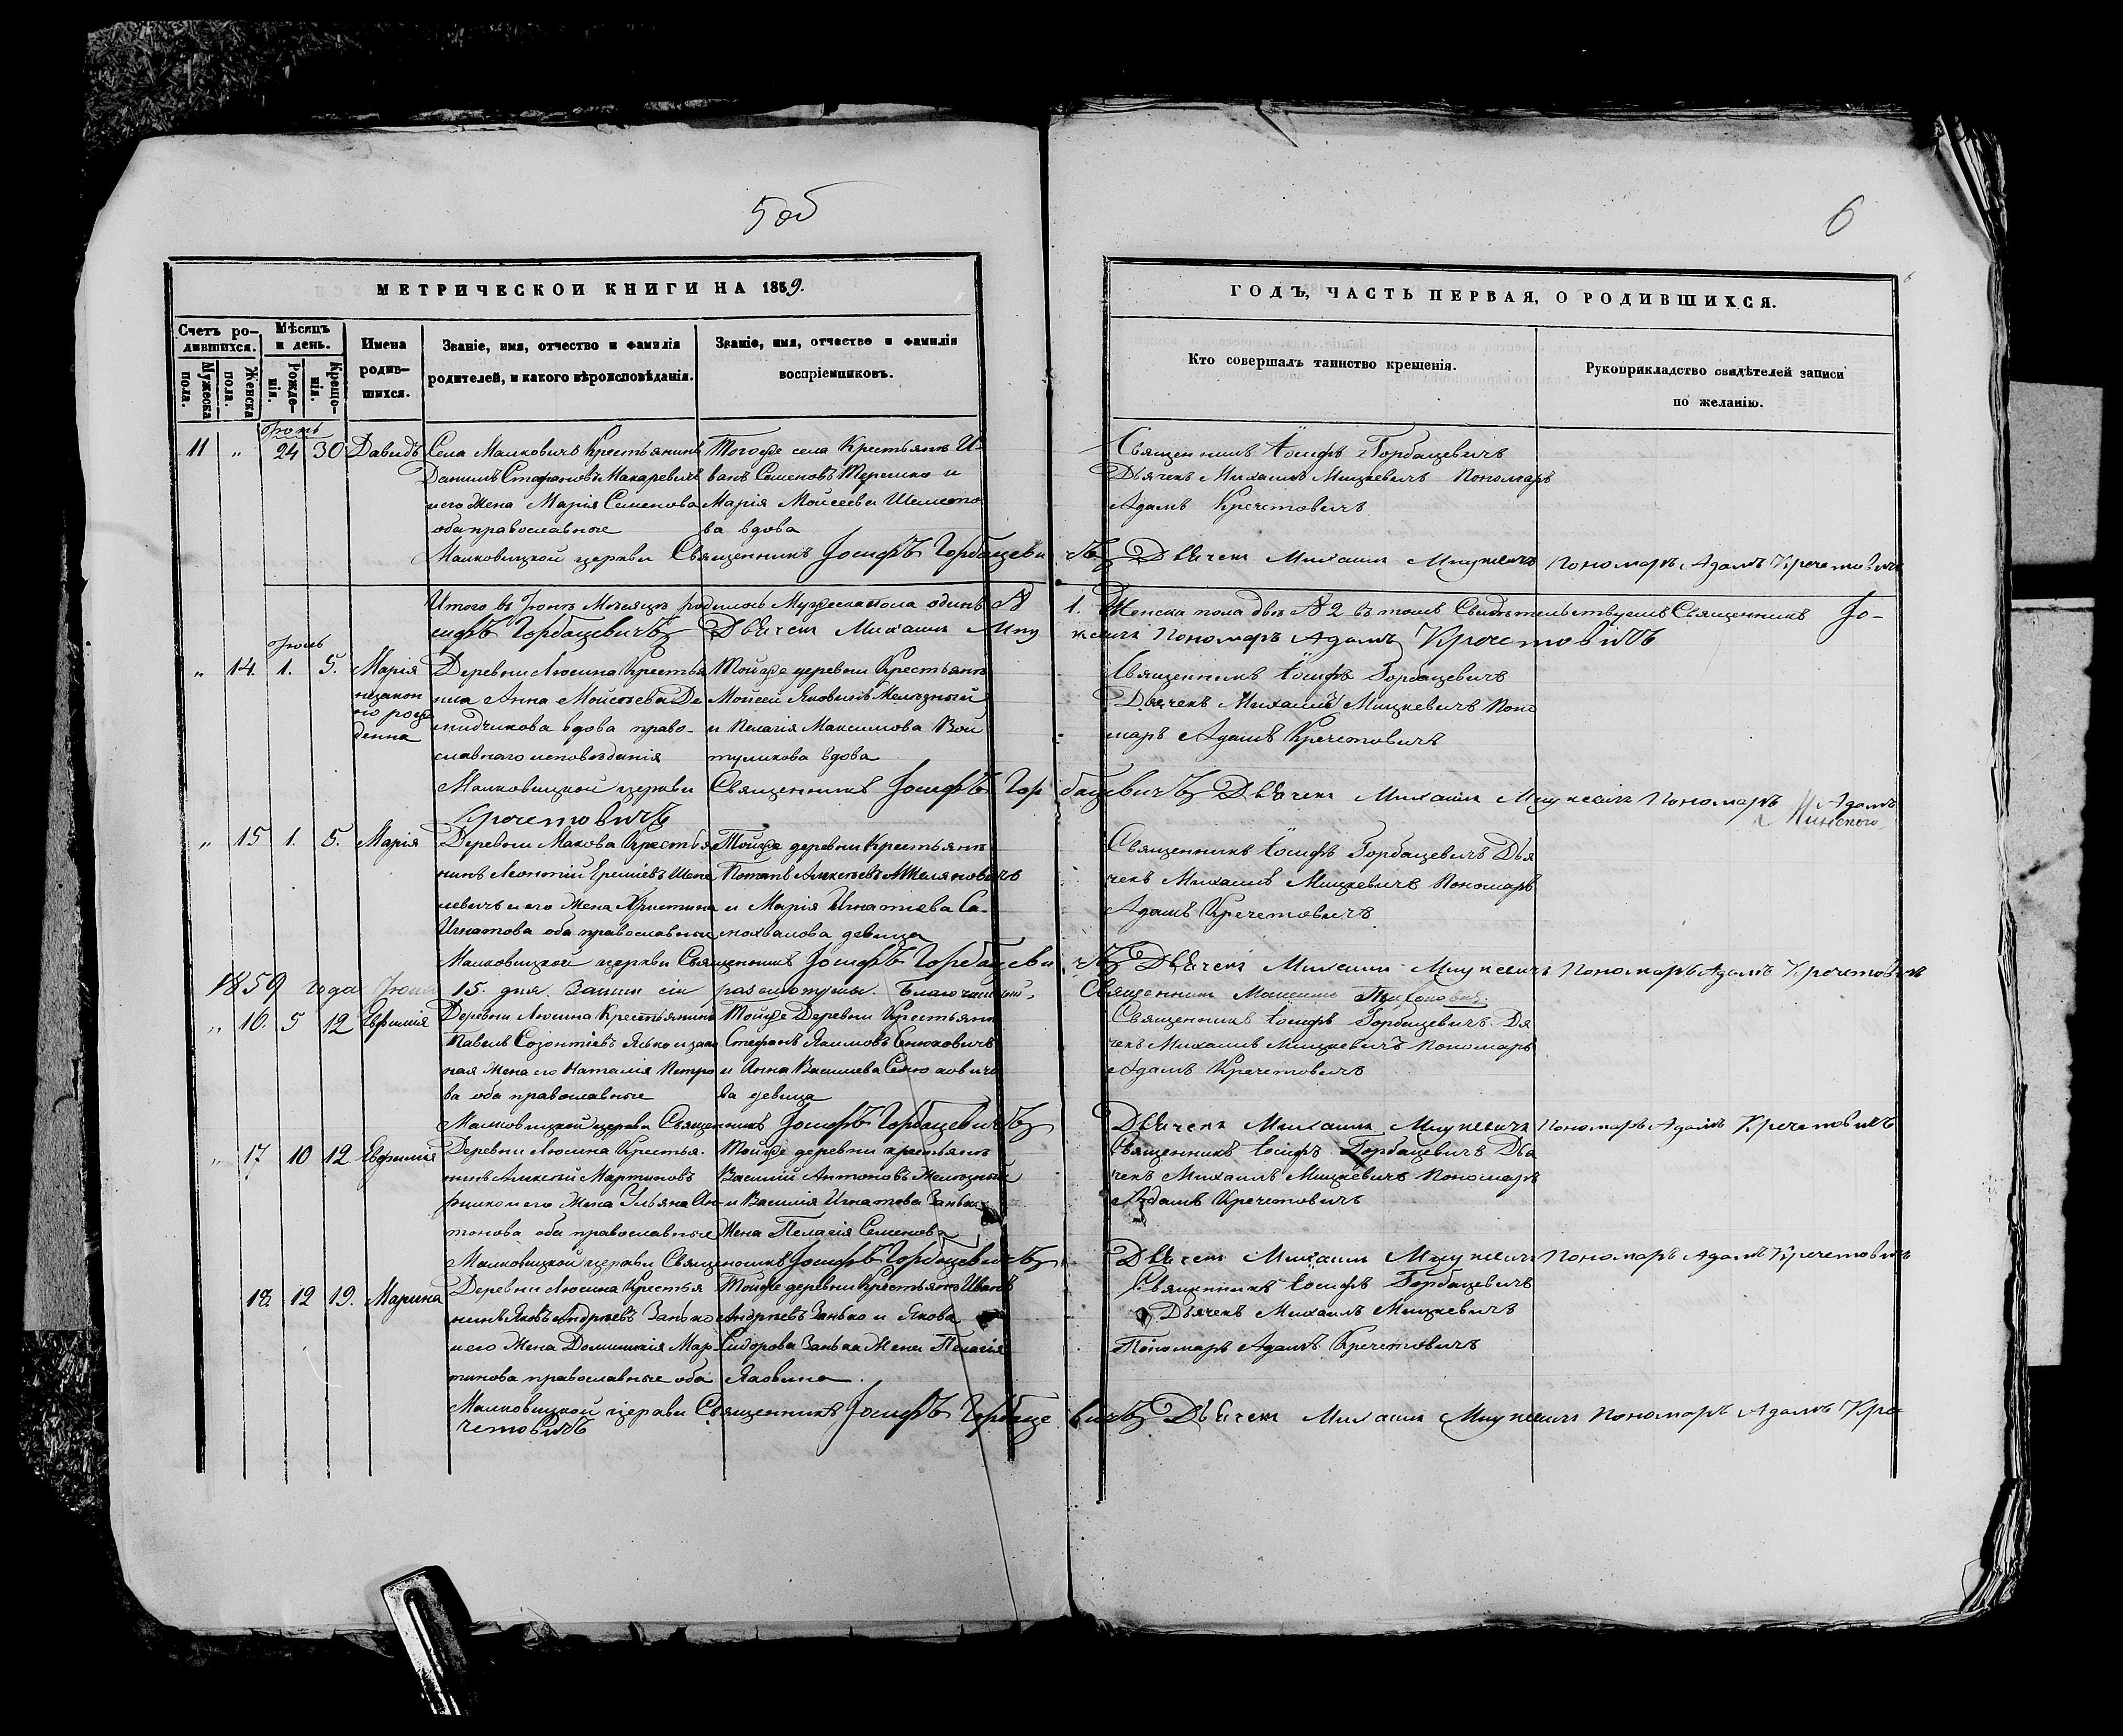 5 об
6
МЕТРИЧЕСКОЙ КНИГИ НА 1859.
ГОДЪ, ЧАСТЬ ПЕРВАЯ, О РОДИВШИХСЯ.
Счетъ родившихся.
Мужеска пола.
Женска пола.
Мѣсяцъ и день.
Рожденія.
Крещенія.
Имена родившихся.
Званіе, имя, отчество и фамилія родителей, и какого вѣроисповѣданія.
Званіе, имя, отчество и фамилія воспріемниковъ.
Кто совершалъ таинство крещенія.
Рукоприкладство свидѣтелей записи по желанію.
Іюнь
11 " 24 30 Давидъ
Села Малковичъ Крестьянинъ
Даніилъ Стефановъ Макаревичъ
и его жена Марія Семенова
оба православные
Тогоже села Крестьянъ И-
ванъ Семеновъ Терешко и
Марія Моисеева Шелесто
ва вдова
Священникъ Іосифъ Горбацевичъ
Дьячекъ Михаилъ Мицкевичъ Пономарь
Адамъ Кречетовичъ
Малковицкой церкви Священникъ Іосифъ Горбацевичъ Дьячекъ Михаилъ Мицкевичъ Пономарь Адамъ Кречетовичъ
Итого въ Іюнѣ Мѣсяцѣ родилось Мужеска пола одинъ № 1. Женска пола двѣ № 2 въ томъ Свидѣтельствуемъ Священникъ Іо-
сифъ Горбацевичъ Дьячекъ Михаилъ Мицкевичъ Пономарь Адамъ Кречетовичъ
" 14. 1. 5. Марія
незакон
но рож
денна
Деревни Люсина Крестья
нка Анна Моисеева Де
мидчикова вдова право-
славнаго исповѣданія
Тойже деревни Крестьянъ
Моисей Яковлевъ Мелѣзный
и Пелагія Максимова Вой
туликова вдова
Священникъ Іосифъ Горбацевичъ
Дьячекъ Михаилъ Мицкевичъ Поно
марь Адамъ Кречетовичъ
Малковицкой церкви Священникъ Іосифъ Горбацевичъ Дьячекъ Михаилъ Мицкевичъ Пономарь Адамъ
Кречетовичъ
" 15 1. 5. Марія
Деревни Макова Крестья
нинъ Леонтій
левичъ и его жена Христина
Игнатова оба православные
Тойже деревни Крестьянъ
Потапъ Алексѣевъ
и Марія Игнатіева Са-
мохвалова девица
Священникъ Іосифъ Горбацевичъ Дья
чекъ Михаилъ Мицкевичъ Пономарь
Адамъ Кречетовичъ
Малковицкой церкви Священникъ Іосифъ Горбацевичъ Дьячекъ Михаилъ Мицкевичъ Пономарь Адамъ Кречетовичъ
1859 года 15. дня. Записи сіи Священникъ
" 16. 5 12 Евфимія
Деревни Люсина Крестьянинъ
Павелъ Созонтіевъ Янко и закон
ная жена его Наталія Петро
ва оба православные
Тойже Деревни Крестьянъ
Стефанъ Якимовъ Сенюковичъ
и Анна Василева Сенюковичо
ва девица
Священникъ Іосифъ Горбацевичъ Дя
чекъ Михаилъ Мицкевичъ Пономарь
Адамъ Кречетовичъ
Малковицкой церкви Священникъ Іосифъ Горбацевичъ Дьячекъ Михаилъ Мицкевичъ Пономарь Адамъ Кречетовичъ
" 17 10 12 Евфимія
Деревни Люсина Крестья.
нинъ Алексѣй Мартиновъ
и его жена Ульяна Ан-
тонова оба православные
Тойже деревни крестьянъ
Василій Антоновъ
и Василія Игнатова Занько
Жена Пелагія Семенова
Священникъ Іосифъ Горбацевичъ Дья
чекъ Михаилъ Мицкевичъ Пономарь
Адамъ Кречетовичъ
Малковицкой церкви Священникъ Іосифъ Горбацевичъ Дьячекъ Михаилъ Мицкевичъ Пономарь Адамъ Кречетовичъ
18. 12 19. Марина
Деревни Люсина Крестья
нинъ Яковъ Андреевъ Занько
и его жена Домникія Мар-
тинова православные оба
Тойже деревни Крестьянъ Иванъ
Андреевъ Занько и Якова
Сидорова Занька Жена Пелагія
Яковлева.
Священникъ Іосифъ Горбацевичъ
Дьячекъ Михаилъ Мицкевичъ
Пономарь Адамъ Кречетовичъ
Малковицкой церкви Священникъ Іосифъ Горбацевичъ Дьячекъ Михаилъ Мицкевичъ Пономарь Адамъ Кре
четовичъ